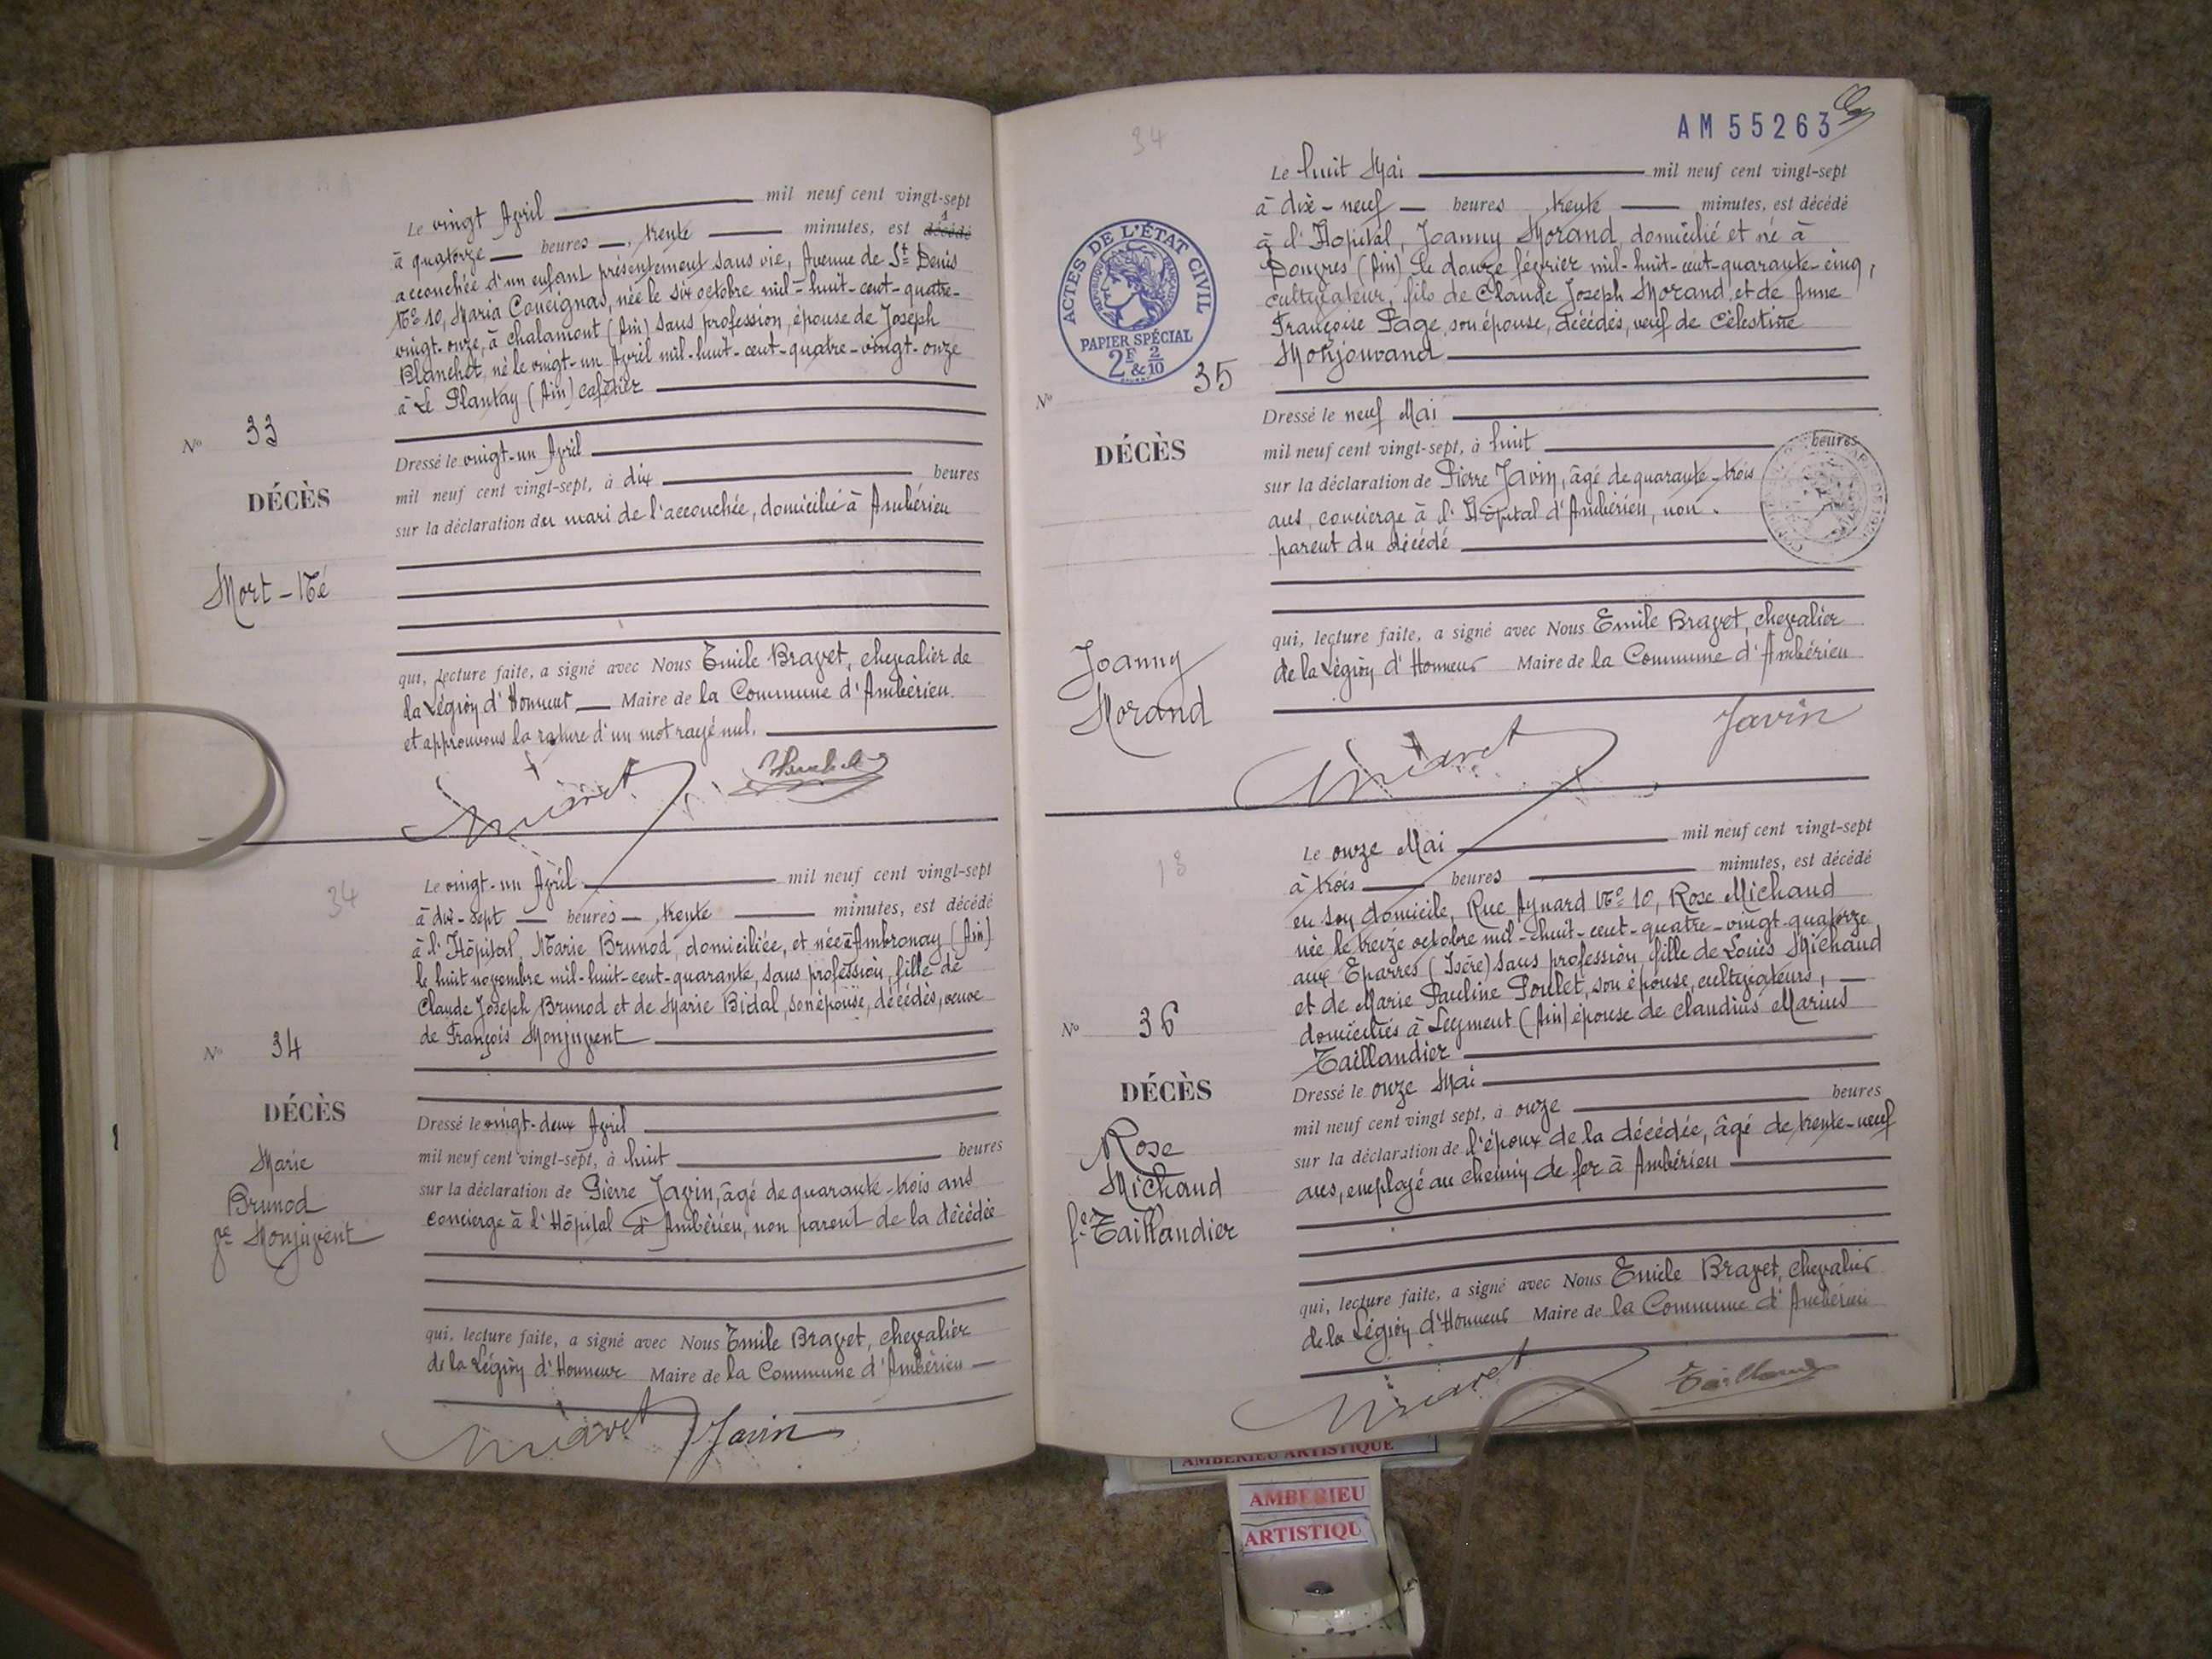 Le vingt Avril mil neuf cent vingt-sept
à quatorze heures trente minutes, est décédé
accouchée d'un enfant présentement sans vie, Avenue de St Denis
No 10, Maria Coueignas, née le six octobre mil-huit-cent-quatre-
vingt-onze, à Chalamont (Ain) sans profession, épouse de Joseph
Blanchet, né le vingt-un Avril mil-huit-cent-quatre-vingt-onze
à Le Plantay (Ain) cafetier
No 33
Dressé le vingt-un Avril
mil neuf cent vingt-sept, à dix heures
DÉCÈS
sur la déclaration du mari de l'accouchée, domicilié à Ambérieu
Mort-Né
qui, lecture faite, a signé avec Nous Emile Bravet, chevalier de
la Légion d'Honneur Maire de la Commune d'Ambérieu.
et approuvons la rature d'un mot rayé nul.
34
Le vingt-un Avril mil neuf cent vingt-sept
à dix-sept heures trente minutes, est décédé
à l'Hôpital, Marie Brunod, domiciliée, et née à Ambronay (Ain)
le huit novembre mil-huit-cent-quarante, sans profession, fille de
Claude Joseph Brunod et de Marie Bidal, son épouse, décédés, veuve
de François Monjuvent
No 34
DÉCÈS
Marie
Brunod
Ve Monjuvent
Dressé le vingt-deux Avril
mil neuf cent vingt-sept, à huit heures
sur la déclaration de Pierre Javin, âgé de quarante-trois ans
concierge à l'Hôpital d'Ambérieu, non parent de la décédée
qui, lecture faite, a signé avec Nous Emile Bravet, chevalier
de la Légion d'Honneur Maire de la Commune d'Ambérieu
Bravet Javin
34
AM 55263
Le huit Mai mil neuf cent vingt-sept
à dix-neuf heures trente minutes, est décédé
à l'Hopital, Joanny Morand, domicilié et né à
Douvres (Ain) le douze février mil-huit-cent-quarante-cinq,
cultivateur, fils de Claude Joseph Morand et de Anne
Françoise Page, son épouse, décédés, veuf de Célestine
Monjouvand
ACTES DE L'ÉTAT CIVIL
PAPIER SPÉCIAL
2F & 2/10
No 35
DÉCÈS
Dressé le neuf Mai
mil neuf cent vingt-sept, à huit heures
sur la déclaration de Pierre Javin, âgé de quarante-trois
ans, concierge à l'Hôpital d'Ambérieu, non
parent du décédé
Joanny
Morand
qui, lecture faite, a signé avec Nous Emile Bravet, chevalier
de la Légion d'Honneur Maire de la Commune d'Ambérieu
Bravet Javin
18
Le onze Mai mil neuf cent vingt-sept
à trois heures minutes, est décédé
en son domicile, Rue Aynard No 10, Rose Michaud
née le treize octobre mil-huit-cent-quatre-vingt-quatorze
aux Eparres (Isère) sans profession, fille de Louis Michaud
et de Marie Pauline Poulet, son épouse, cultivateurs,
domiciliés à Leyment (Ain) épouse de Claudius Marius
Taillandier
No 36
DÉCÈS
Rose
Michaud
fe Taillandier
Dressé le onze Mai
mil neuf cent vingt sept, à onze heures
sur la déclaration de l'époux de la décédée, âgé de trente-neuf
ans, employé au chemin de fer à Ambérieu
qui, lecture faite, a signé avec Nous Emile Bravet, chevalier
de la Légion d'Honneur Maire de la Commune d'Ambérieu
Bravet
AMBERIEU ARTISTIQUE
AMBERIEU
ARTISTIQU